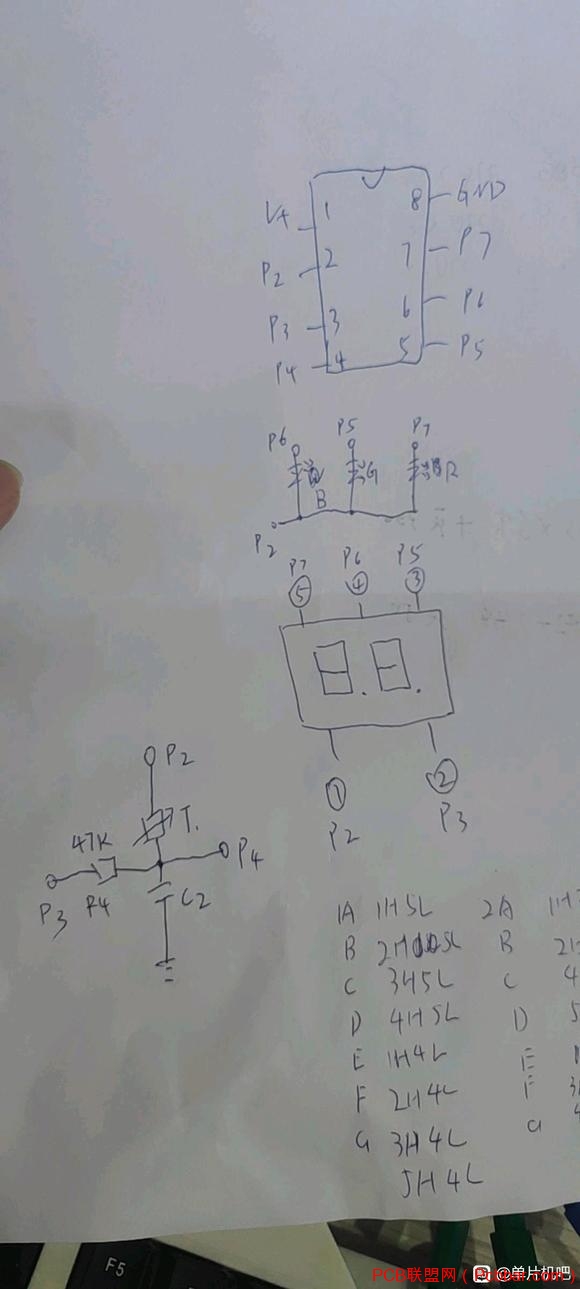 V+ 1 8 GND
P2 2 7 P7
P3 3 6 P6
P4 4 5 P5
P6 P5 P7
B G R
P2
P7 P6 P5
⑤ ④ ③
8.8.
① ②
P2 P3
P2
T.
47K
P4
P3 R4 C2
1A 1H5L 2A 1H
B B
C 3H5L C 4
D 4H5L D 5
E 1H4L E
F 2H4L F 3
G 3H4L G 4
5H4L
F5
PCB联盟网
@单片机吧